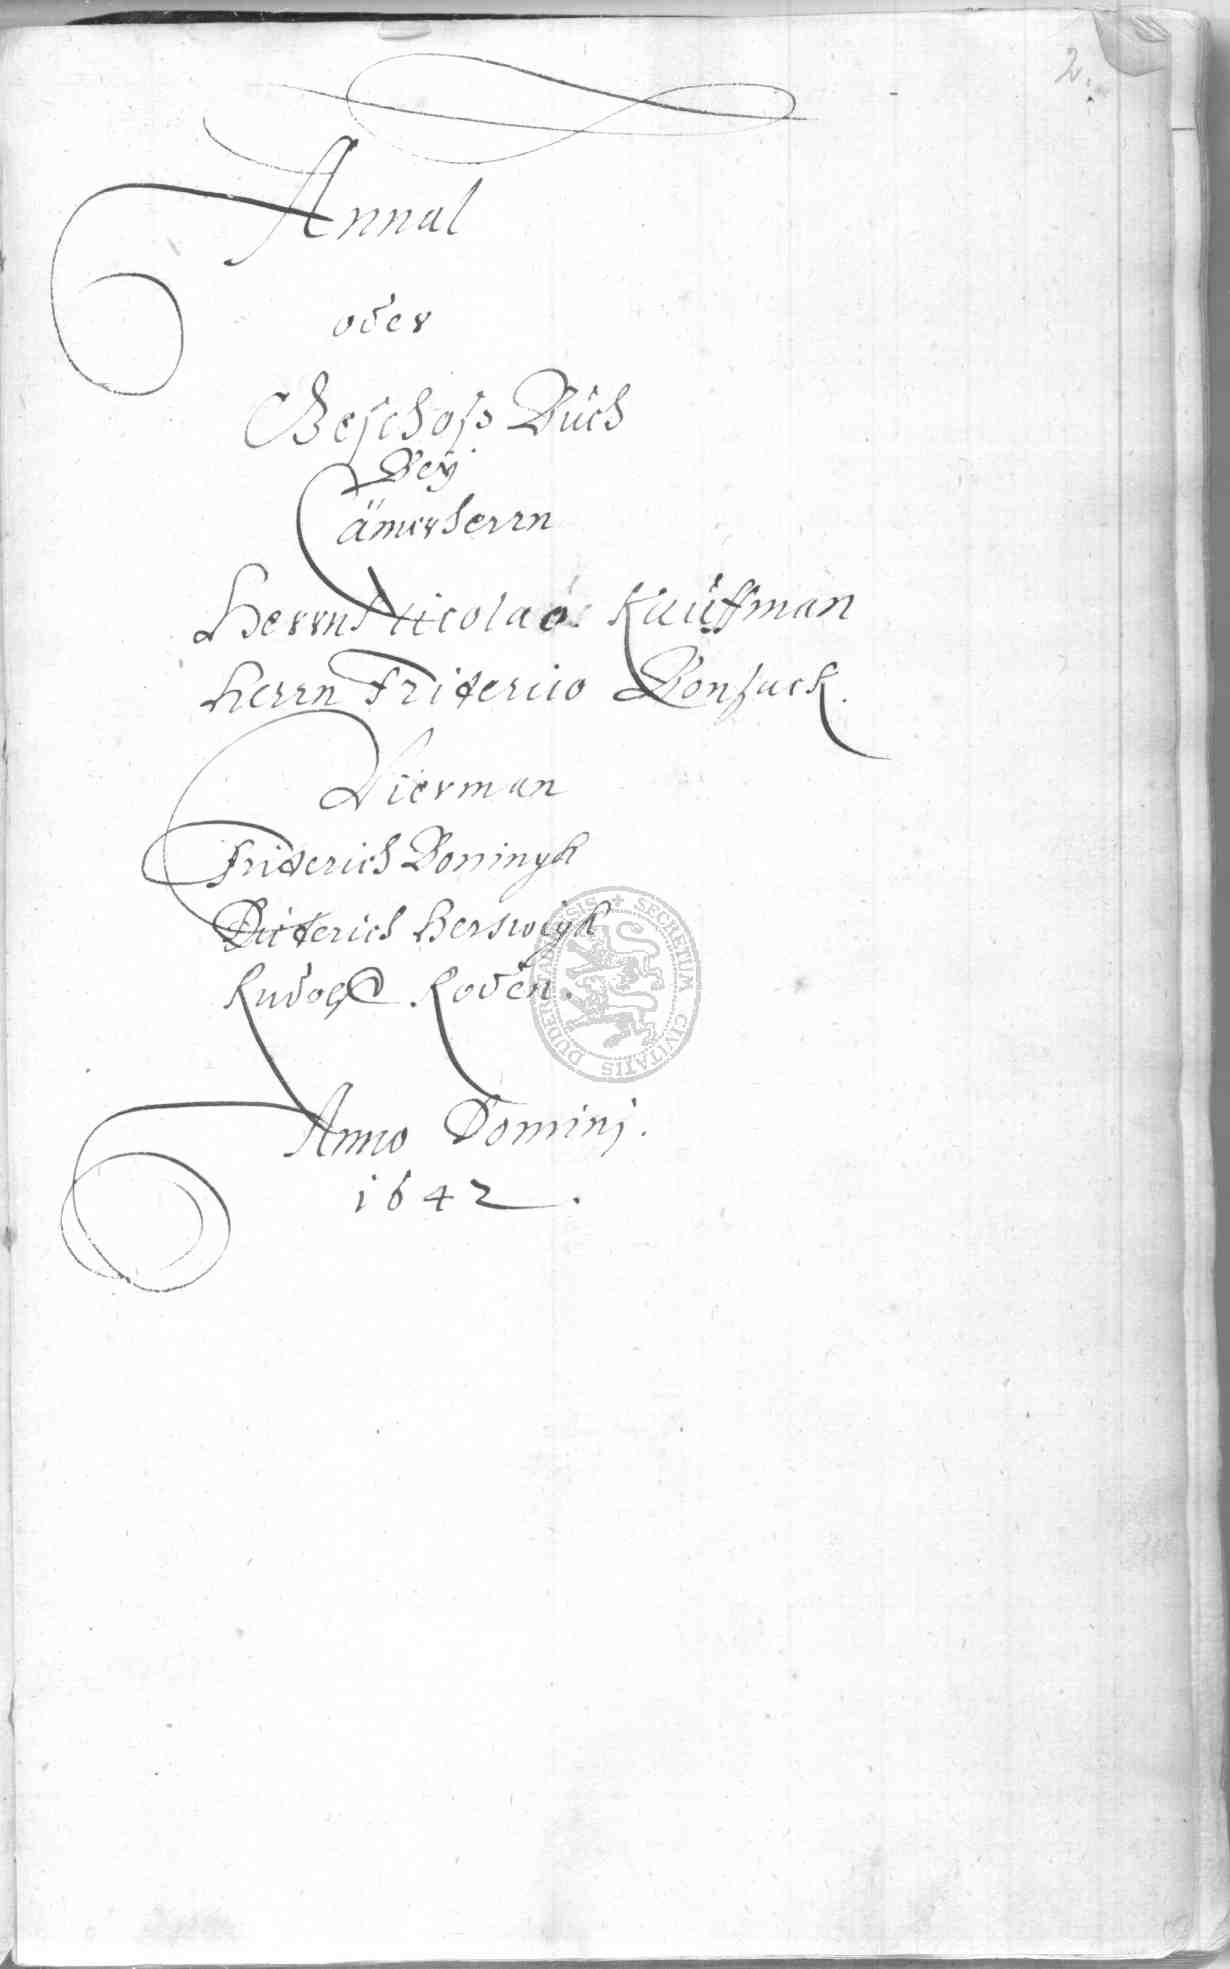 2.
Annal
oder
Geschoß Buch
Bey
Cämerherrn
Herrn Nicolao Kauffman
Herrn Friderico Bonsack.
Vierman
Friderich Boningk
Dieterich Herswigk
Rudolff Roden.
Anno Dominj.
1642.
SECRETUM CIVITATIS DUDERSTADENSIS